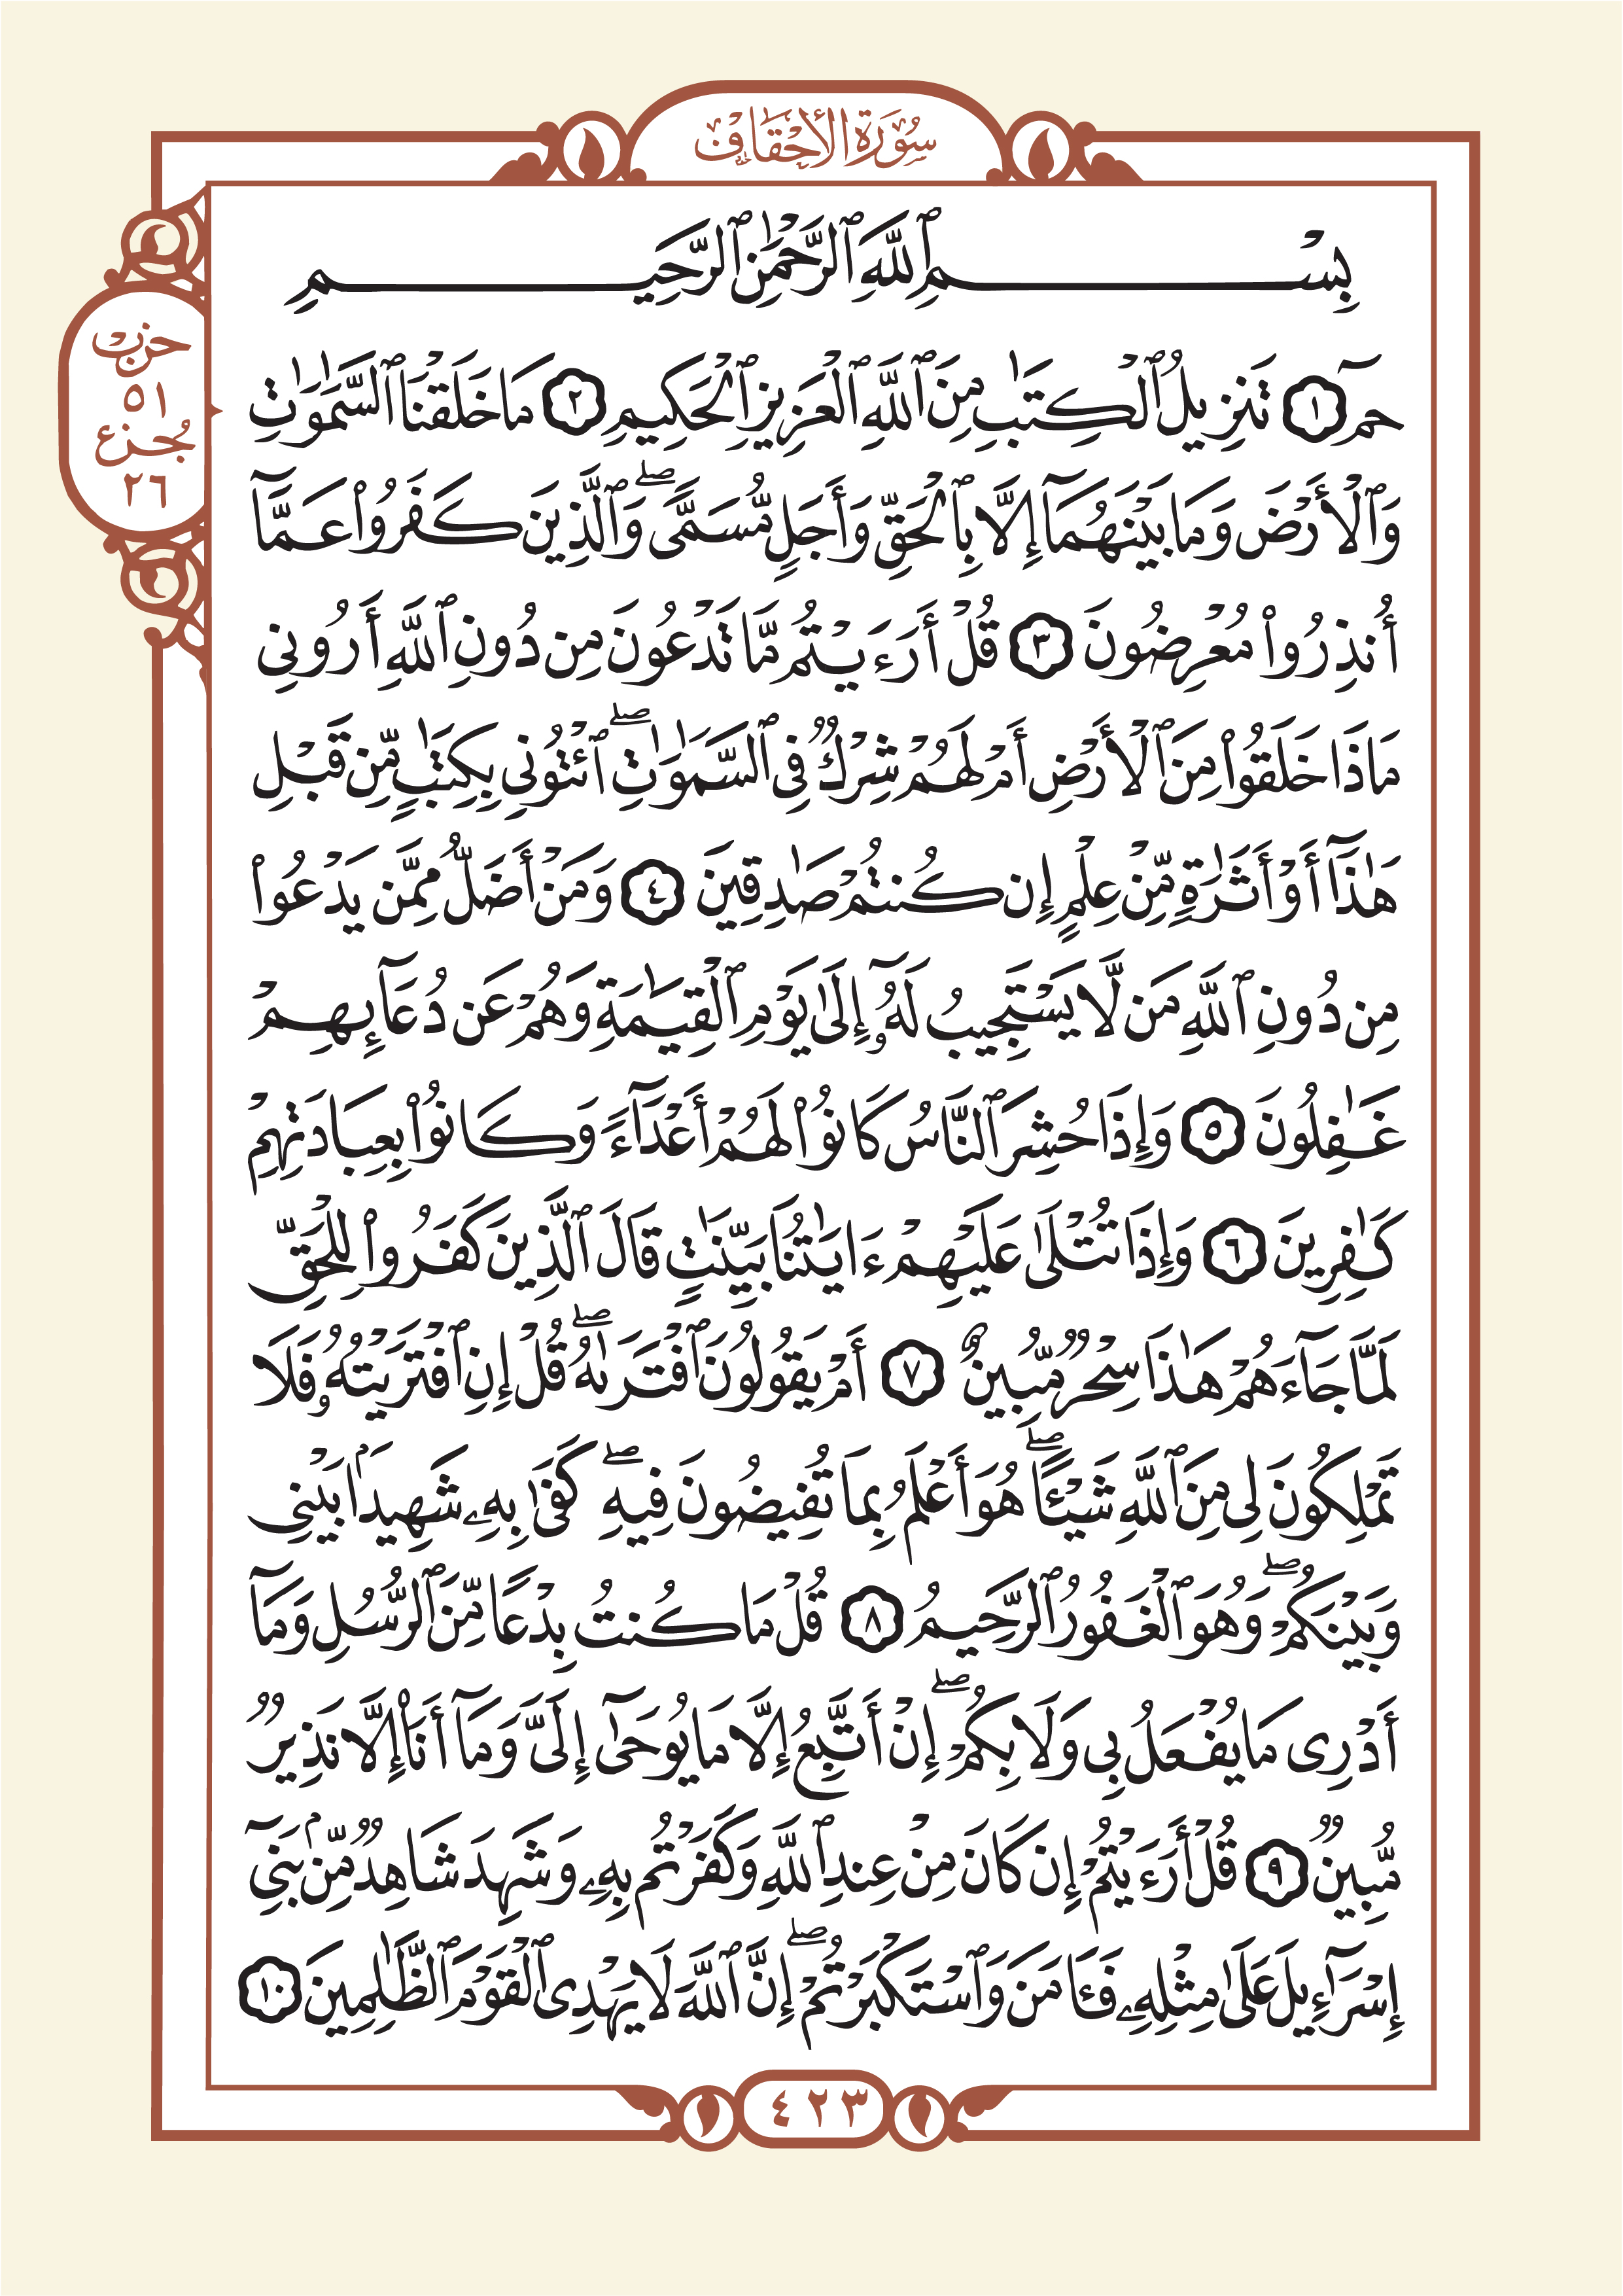 سُورَةُ الأَحْقَافِ
بِسْمِ ٱللَّهِ ٱلرَّحْمَٰنِ ٱلرَّحِيمِ
حزب
٥١
جزء
٢٦
حمٓ ١ تَنزِيلُ ٱلْكِتَٰبِ مِنَ ٱللَّهِ ٱلْعَزِيزِ ٱلْحَكِيمِ ٢ مَا خَلَقْنَا ٱلسَّمَٰوَٰتِ
وَٱلْأَرْضَ وَمَا بَيْنَهُمَآ إِلَّا بِٱلْحَقِّ وَأَجَلٍ مُّسَمًّى ۖ وَٱلَّذِينَ كَفَرُوا۟ عَمَّآ
أُنذِرُوا۟ مُعْرِضُونَ ٣ قُلْ أَرَءَيْتُم مَّا تَدْعُونَ مِن دُونِ ٱللَّهِ أَرُونِى
مَاذَا خَلَقُوا۟ مِنَ ٱلْأَرْضِ أَمْ لَهُمْ شِرْكٌ فِى ٱلسَّمَٰوَٰتِ ۖ ٱئْتُونِى بِكِتَٰبٍ مِّن قَبْلِ
هَٰذَآ أَوْ أَثَٰرَةٍ مِّنْ عِلْمٍ إِن كُنتُمْ صَٰدِقِينَ ٤ وَمَنْ أَضَلُّ مِمَّن يَدْعُوا۟
مِن دُونِ ٱللَّهِ مَن لَّا يَسْتَجِيبُ لَهُۥٓ إِلَىٰ يَوْمِ ٱلْقِيَٰمَةِ وَهُمْ عَن دُعَآئِهِمْ
غَٰفِلُونَ ٥ وَإِذَا حُشِرَ ٱلنَّاسُ كَانُوا۟ لَهُمْ أَعْدَآءً وَكَانُوا۟ بِعِبَادَتِهِمْ
كَٰفِرِينَ ٦ وَإِذَا تُتْلَىٰ عَلَيْهِمْ ءَايَٰتُنَا بَيِّنَٰتٍ قَالَ ٱلَّذِينَ كَفَرُوا۟ لِلْحَقِّ
لَمَّا جَآءَهُمْ هَٰذَا سِحْرٌ مُّبِينٌ ٧ أَمْ يَقُولُونَ ٱفْتَرَىٰهُ ۖ قُلْ إِنِ ٱفْتَرَيْتُهُۥ فَلَا
تَمْلِكُونَ لِى مِنَ ٱللَّهِ شَيْـًٔا ۖ هُوَ أَعْلَمُ بِمَا تُفِيضُونَ فِيهِ ۖ كَفَىٰ بِهِۦ شَهِيدًۢا بَيْنِى
وَبَيْنَكُمْ ۖ وَهُوَ ٱلْغَفُورُ ٱلرَّحِيمُ ٨ قُلْ مَا كُنتُ بِدْعًا مِّنَ ٱلرُّسُلِ وَمَآ
أَدْرِى مَا يُفْعَلُ بِى وَلَا بِكُمْ ۖ إِنْ أَتَّبِعُ إِلَّا مَا يُوحَىٰٓ إِلَىَّ وَمَآ أَنَا۠ إِلَّا نَذِيرٌ
مُّبِينٌ ٩ قُلْ أَرَءَيْتُمْ إِن كَانَ مِنْ عِندِ ٱللَّهِ وَكَفَرْتُم بِهِۦ وَشَهِدَ شَاهِدٌ مِّنۢ بَنِىٓ
إِسْرَٰٓءِيلَ عَلَىٰ مِثْلِهِۦ فَـَٔامَنَ وَٱسْتَكْبَرْتُمْ ۖ إِنَّ ٱللَّهَ لَا يَهْدِى ٱلْقَوْمَ ٱلظَّٰلِمِينَ ١٠
٤٢٣